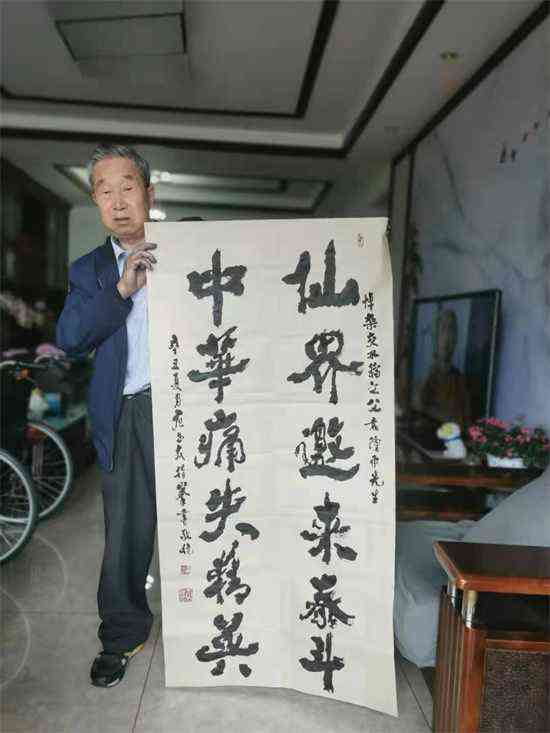 悼雜交水稻之父袁隆平先生
仙界邀来泰斗
中華痛失精英
辛丑夏月 書敬挽